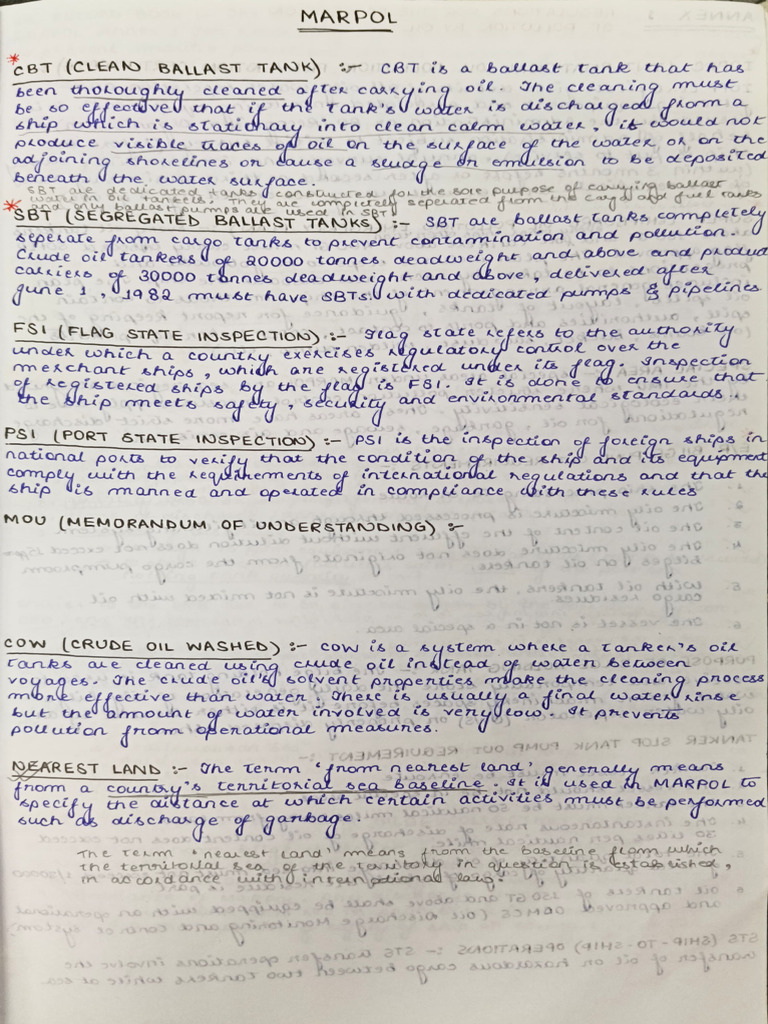 MARPOL
* CBT (CLEAN BALLAST TANK) :- CBT is a ballast tank that has
been thoroughly cleaned after carrying oil. The cleaning must
be so effective that if the tank's water is discharged from a
ship which is stationary into clean calm water, it would not
produce visible traces of oil on the surface of the water or on the
adjoining shorelines or cause a sludge or emulsion to be deposited
beneath the water surface.
SBT are dedicated tanks constructed for the sole purpose of carrying ballast
water in oil tankers. They are completely seperated from the cargo and fuel tanks
and only ballast pumps are used in SBT
* SBT (SEGREGATED BALLAST TANKS) :- SBT are ballast tanks completely
seperate from cargo tanks to prevent contamination and pollution.
Crude oil tankers of 20000 tonnes deadweight and above and product
carriers of 30000 tonnes deadweight and above, delivered after
June 1, 1982 must have SBTs with dedicated pumps & pipelines
FSI (FLAG STATE INSPECTION) :- Flag state refers to the authority
under which a country exercises regulatory control over the
merchant ships, which are registered under its flag. Inspection
of registered ships by the flag is FSI. It is done to ensure that
the ship meets safety, security and environmental standards.
PSI (PORT STATE INSPECTION) :- PSI is the inspection of foreign ships in
national ports to verify that the condition of the ship and its equipment
comply with the requirements of international regulations and that the
ship is manned and operated in compliance with these rules
MOU (MEMORANDUM OF UNDERSTANDING) :-
COW (CRUDE OIL WASHED) :- COW is a system where a tanker's oil
tanks are cleaned using crude oil instead of water between
voyages. The crude oil's solvent properties make the cleaning process
more effective than water. There is usually a final water rinse
but the amount of water involved is very low. It prevents
pollution from operational measures.
NEAREST LAND :- The term 'from nearest land' generally means
from a country's territorial sea baseline. It is used in MARPOL to
specify the distance at which certain activities must be performed
such as discharge of garbage.
The term 'nearest land' means from the baseline from which
the territorial sea of the territory in question is established,
in accordance with international law.